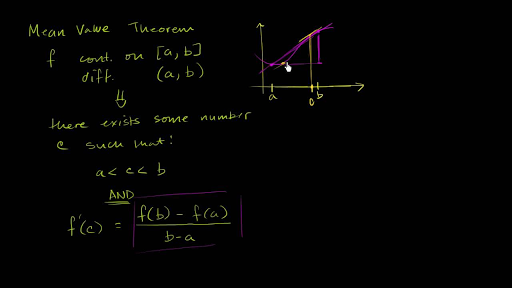 Mean Value Theorem
f cont. on [a, b]
diff. (a, b)
⇓
there exists some number
c such that:
a < c < b
AND
f'(c) = f(b) - f(a) / b-a
a
0
b